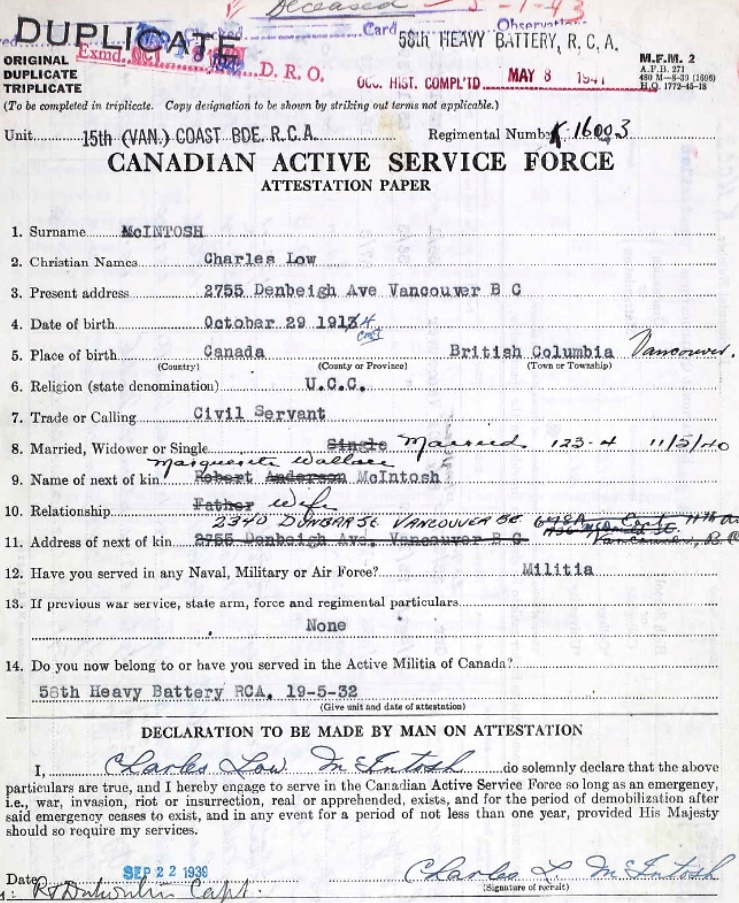 Deceased 5-1-43
DUPLICATE Card Observation
58th HEAVY BATTERY, R.C.A.
ORIGINAL Exmd. D.R.O. M.F.M. 2
DUPLICATE A.F.B. 271
TRIPLICATE OCC. HIST. COMPL'TD. MAY 8 1941 480 M-8-39 (1696)
H.Q. 1772-45-18
(To be completed in triplicate. Copy designation to be shown by striking out terms not applicable.)
Unit 15th (VAN.) COAST BDE. R.C.A. Regimental Number K-16003
CANADIAN ACTIVE SERVICE FORCE
ATTESTATION PAPER
1. Surname McINTOSH
2. Christian Names Charles Low
3. Present address 2755 Denbeigh Ave Vancouver B C
4. Date of birth October 29 1913 4
5. Place of birth Canada British Columbia Vancouver.
(Country) (County or Province) (Town or Township)
6. Religion (state denomination) U.C.C.
7. Trade or Calling Civil Servant
8. Married, Widower or Single Single Married 123-4 11/5/40
Marguerite Wallace
9. Name of next of kin Robert Anderson McIntosh
10. Relationship Father Wife
2340 DUNBAR ST. VANCOUVER BC
11. Address of next of kin 2755 Denbeigh Ave. Vancouver B C Vancouver, B.C.
12. Have you served in any Naval, Military or Air Force? Militia
13. If previous war service, state arm, force and regimental particulars
None
14. Do you now belong to or have you served in the Active Militia of Canada?
58th Heavy Battery RCA. 19-5-32
(Give unit and date of attestation)
DECLARATION TO BE MADE BY MAN ON ATTESTATION
I, Charles Low McIntosh do solemnly declare that the above
particulars are true, and I hereby engage to serve in the Canadian Active Service Force so long as an emergency,
i.e., war, invasion, riot or insurrection, real or apprehended, exists, and for the period of demobilization after
said emergency ceases to exist, and in any event for a period of not less than one year, provided His Majesty
should so require my services.
Date SEP 22 1939 Charles L. McIntosh
Capt. (Signature of recruit)